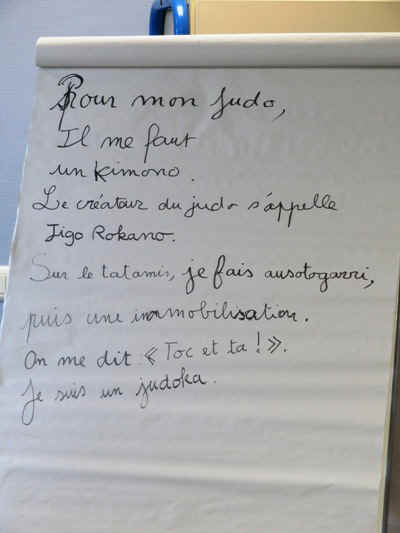 Pour mon judo,
Il me faut
un kimono.
Le créateur du judo s'appelle
Jigo Rokano.
Sur le tatamis, je fais ausotogarri,
puis une immobilisation.
On me dit « Toc et ta ! ».
Je suis un judoka.